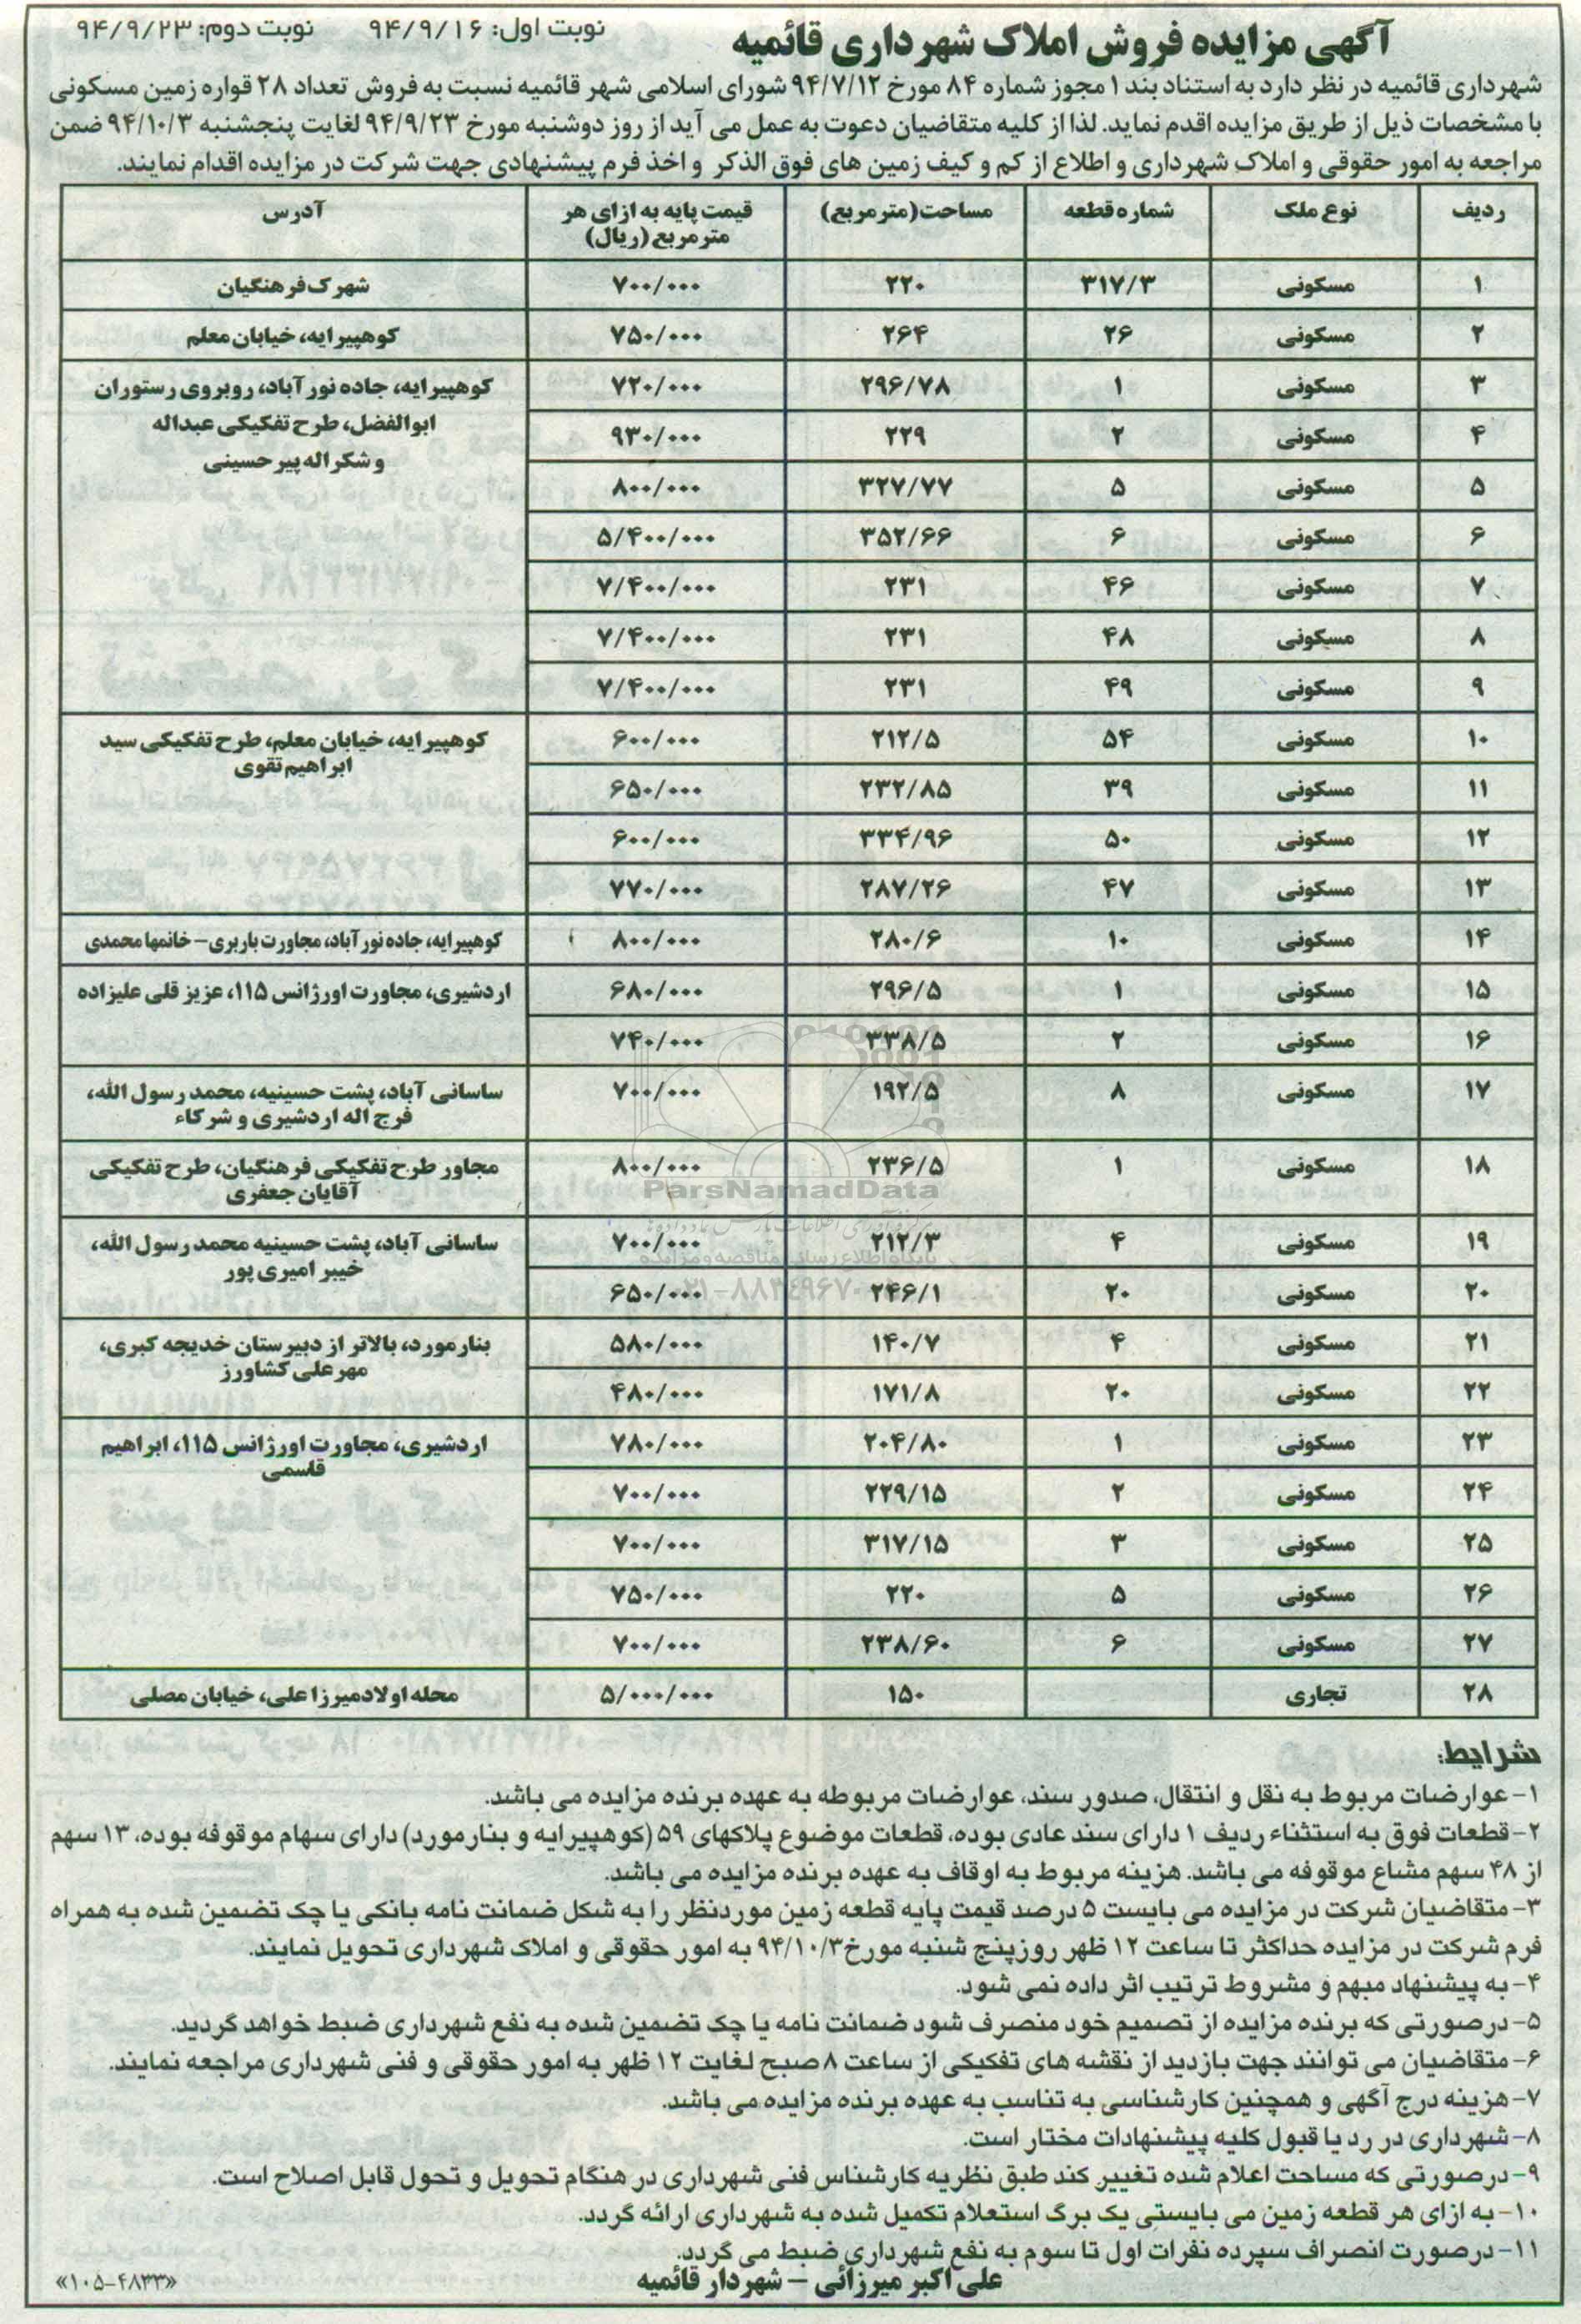 آگهی مزایده فروش املاک شهرداری قائمیه
نوبت اول: ۹۴/۹/۱۶ نوبت دوم: ۹۴/۹/۲۳
شهرداری قائمیه در نظر دارد به استناد بند ۱ مجوز شماره ۸۴ مورخ ۹۴/۷/۱۲ شورای اسلامی شهر قائمیه نسبت به فروش تعداد ۲۸ قواره زمین مسکونی
با مشخصات ذیل از طریق مزایده اقدم نماید. لذا از کلیه متقاضیان دعوت به عمل می آید از روز دوشنبه مورخ ۹۴/۹/۲۳ لغایت پنجشنبه ۹۴/۱۰/۳ ضمن
مراجعه به امور حقوقی و املاک شهرداری و اطلاع از کم و کیف زمین های فوق الذکر و اخذ فرم پیشنهادی جهت شرکت در مزایده اقدام نمایند.
ردیف نوع ملک شماره قطعه مساحت(مترمربع) قیمت پایه به ازای هر مترمربع(ریال) آدرس
۱ مسکونی ۳۱۷/۳ ۲۲۰ ۷۰۰/۰۰۰ شهرک فرهنگیان
۲ مسکونی ۲۶ ۲۶۴ ۷۵۰/۰۰۰ کوهپیرایه، خیابان معلم
۳ مسکونی ۱ ۲۹۶/۷۸ ۷۲۰/۰۰۰ کوهپیرایه، جاده نورآباد، روبروی رستوران
ابوالفضل، طرح تفکیکی عبداله
و شکراله پیرحسینی
۴ مسکونی ۲ ۲۲۹ ۹۳۰/۰۰۰
۵ مسکونی ۵ ۳۲۷/۷۷ ۸۰۰/۰۰۰
۶ مسکونی ۶ ۳۵۲/۶۶ ۵/۴۰۰/۰۰۰
۷ مسکونی ۴۶ ۲۳۱ ۷/۴۰۰/۰۰۰
۸ مسکونی ۴۸ ۲۳۱ ۷/۴۰۰/۰۰۰
۹ مسکونی ۴۹ ۲۳۱ ۷/۴۰۰/۰۰۰
۱۰ مسکونی ۵۴ ۲۱۲/۵ ۶۰۰/۰۰۰ کوهپیرایه، خیابان معلم، طرح تفکیکی سید
ابراهیم تقوی
۱۱ مسکونی ۳۹ ۲۳۲/۸۵ ۶۵۰/۰۰۰
۱۲ مسکونی ۵۰ ۳۳۴/۹۶ ۶۰۰/۰۰۰
۱۳ مسکونی ۴۷ ۲۸۷/۲۶ ۷۷۰/۰۰۰
۱۴ مسکونی ۱۰ ۲۸۰/۶ ۸۰۰/۰۰۰ کوهپیرایه، جاده نورآباد، مجاورت باربری- خانمها محمدی
۱۵ مسکونی ۱ ۲۹۶/۵ ۶۸۰/۰۰۰ اردشیری، مجاورت اورژانس ۱۱۵، عزیز قلی علیزاده
۱۶ مسکونی ۲ ۳۳۸/۵ ۷۴۰/۰۰۰
۱۷ مسکونی ۸ ۱۹۲/۵ ۷۰۰/۰۰۰ ساسانی آباد، پشت حسینیه، محمد رسول الله،
فرج اله اردشیری و شرکاء
۱۸ مسکونی ۱ ۲۳۶/۵ ۸۰۰/۰۰۰ مجاور طرح تفکیکی فرهنگیان، طرح تفکیکی
آقایان جعفری
ParsNamadData
۱۹ مسکونی ۴ ۲۱۲/۳ ۷۰۰/۰۰۰ ساسانی آباد، پشت حسینیه محمد رسول الله،
خیبر امیری پور
پایگاه اطلاع رسانی مناقصه و مزایده
۰۲۱-۸۸۳۴۹۶۷۰
۲۰ مسکونی ۲۰ ۲۴۶/۱ ۶۵۰/۰۰۰
۲۱ مسکونی ۴ ۱۴۰/۷ ۵۸۰/۰۰۰ بنارمورد، بالاتر از دبیرستان خدیجه کبری،
مهرعلی کشاورز
۲۲ مسکونی ۲۰ ۱۷۱/۸ ۴۸۰/۰۰۰
۲۳ مسکونی ۱ ۲۰۴/۸۰ ۷۸۰/۰۰۰ اردشیری، مجاورت اورژانس ۱۱۵، ابراهیم
قاسمی
۲۴ مسکونی ۲ ۲۲۹/۱۵ ۷۰۰/۰۰۰
۲۵ مسکونی ۳ ۳۱۷/۱۵ ۷۰۰/۰۰۰
۲۶ مسکونی ۵ ۲۲۰ ۷۵۰/۰۰۰
۲۷ مسکونی ۶ ۲۳۸/۶۰ ۷۰۰/۰۰۰
۲۸ تجاری ۱۵۰ ۵/۰۰۰/۰۰۰ محله اولادمیرزاعلی، خیابان مصلی
شرایط:
۱- عوارضات مربوط به نقل و انتقال، صدور سند، عوارضات مربوطه به عهده برنده مزایده می باشد.
۲- قطعات فوق به استثناء ردیف ۱ دارای سند عادی بوده، قطعات موضوع پلاکهای ۵۹ (کوهپیرایه و بنارمورد) دارای سهام موقوفه بوده، ۱۳ سهم
از ۴۸ سهم مشاع موقوفه می باشد. هزینه مربوط به اوقاف به عهده برنده مزایده می باشد.
۳- متقاضیان شرکت در مزایده می بایست ۵ درصد قیمت پایه قطعه زمین موردنظر را به شکل ضمانت نامه بانکی یا چک تضمین شده به همراه
فرم شرکت در مزایده حداکثر تا ساعت ۱۲ ظهر روزپنج شنبه مورخ ۹۴/۱۰/۳ به امور حقوقی و املاک شهرداری تحویل نمایند.
۴- به پیشنهاد مبهم و مشروط ترتیب اثر داده نمی شود.
۵- درصورتی که برنده مزایده از تصمیم خود منصرف شود ضمانت نامه یا چک تضمین شده به نفع شهرداری ضبط خواهد گردید.
۶- متقاضیان می توانند جهت بازدید از نقشه های تفکیکی از ساعت ۸ صبح لغایت ۱۲ ظهر به امور حقوقی و فنی شهرداری مراجعه نمایند.
۷- هزینه درج آگهی و همچنین کارشناسی به تناسب به عهده برنده مزایده می باشد.
۸- شهرداری در رد یا قبول کلیه پیشنهادات مختار است.
۹- درصورتی که مساحت اعلام شده تغییر کند طبق نظریه کارشناس فنی شهرداری در هنگام تحویل و تحول قابل اصلاح است.
۱۰- به ازای هر قطعه زمین می بایستی یک برگ استعلام تکمیل شده به شهرداری ارائه گردد.
۱۱- درصورت انصراف سپرده نفرات اول تا سوم به نفع شهرداری ضبط می گردد.
علی اکبر میرزائی – شهردار قائمیه
«۱۰۵-۴۸۳۳»